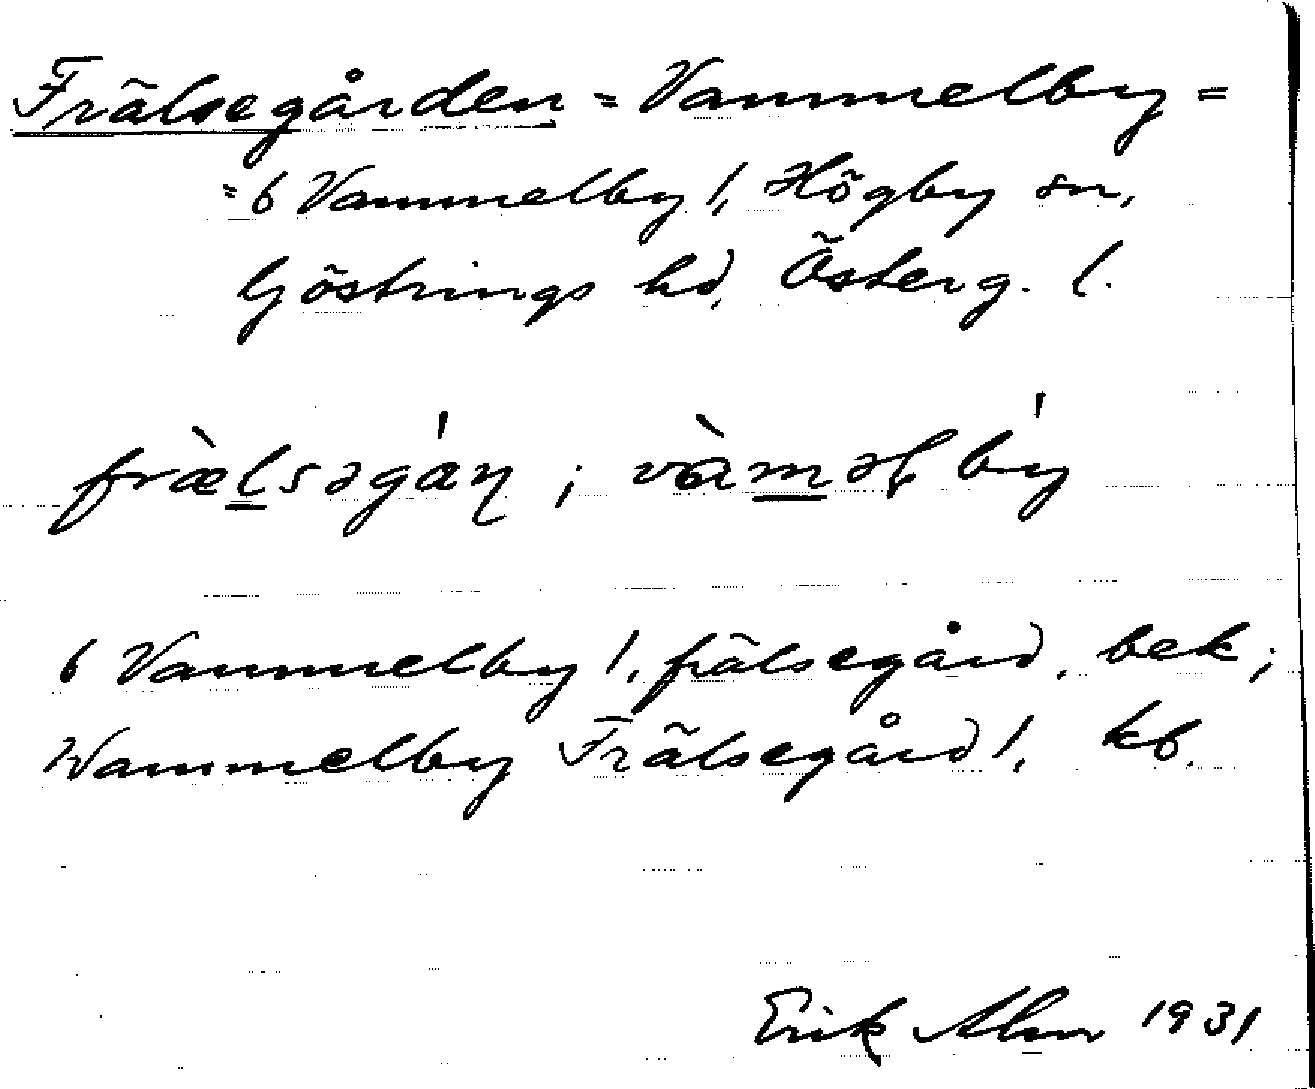 Frälsegården = Vammelby =
= 6 Vammelby 1, Högby sn,
Göstrings hd, Österg. l.
fræ̀lsəgán ; vàməlbý
6 Vammelby 1, frälsegård, bek;
Wammelby Frälsegård 1, kb.
Erik Alm 1931